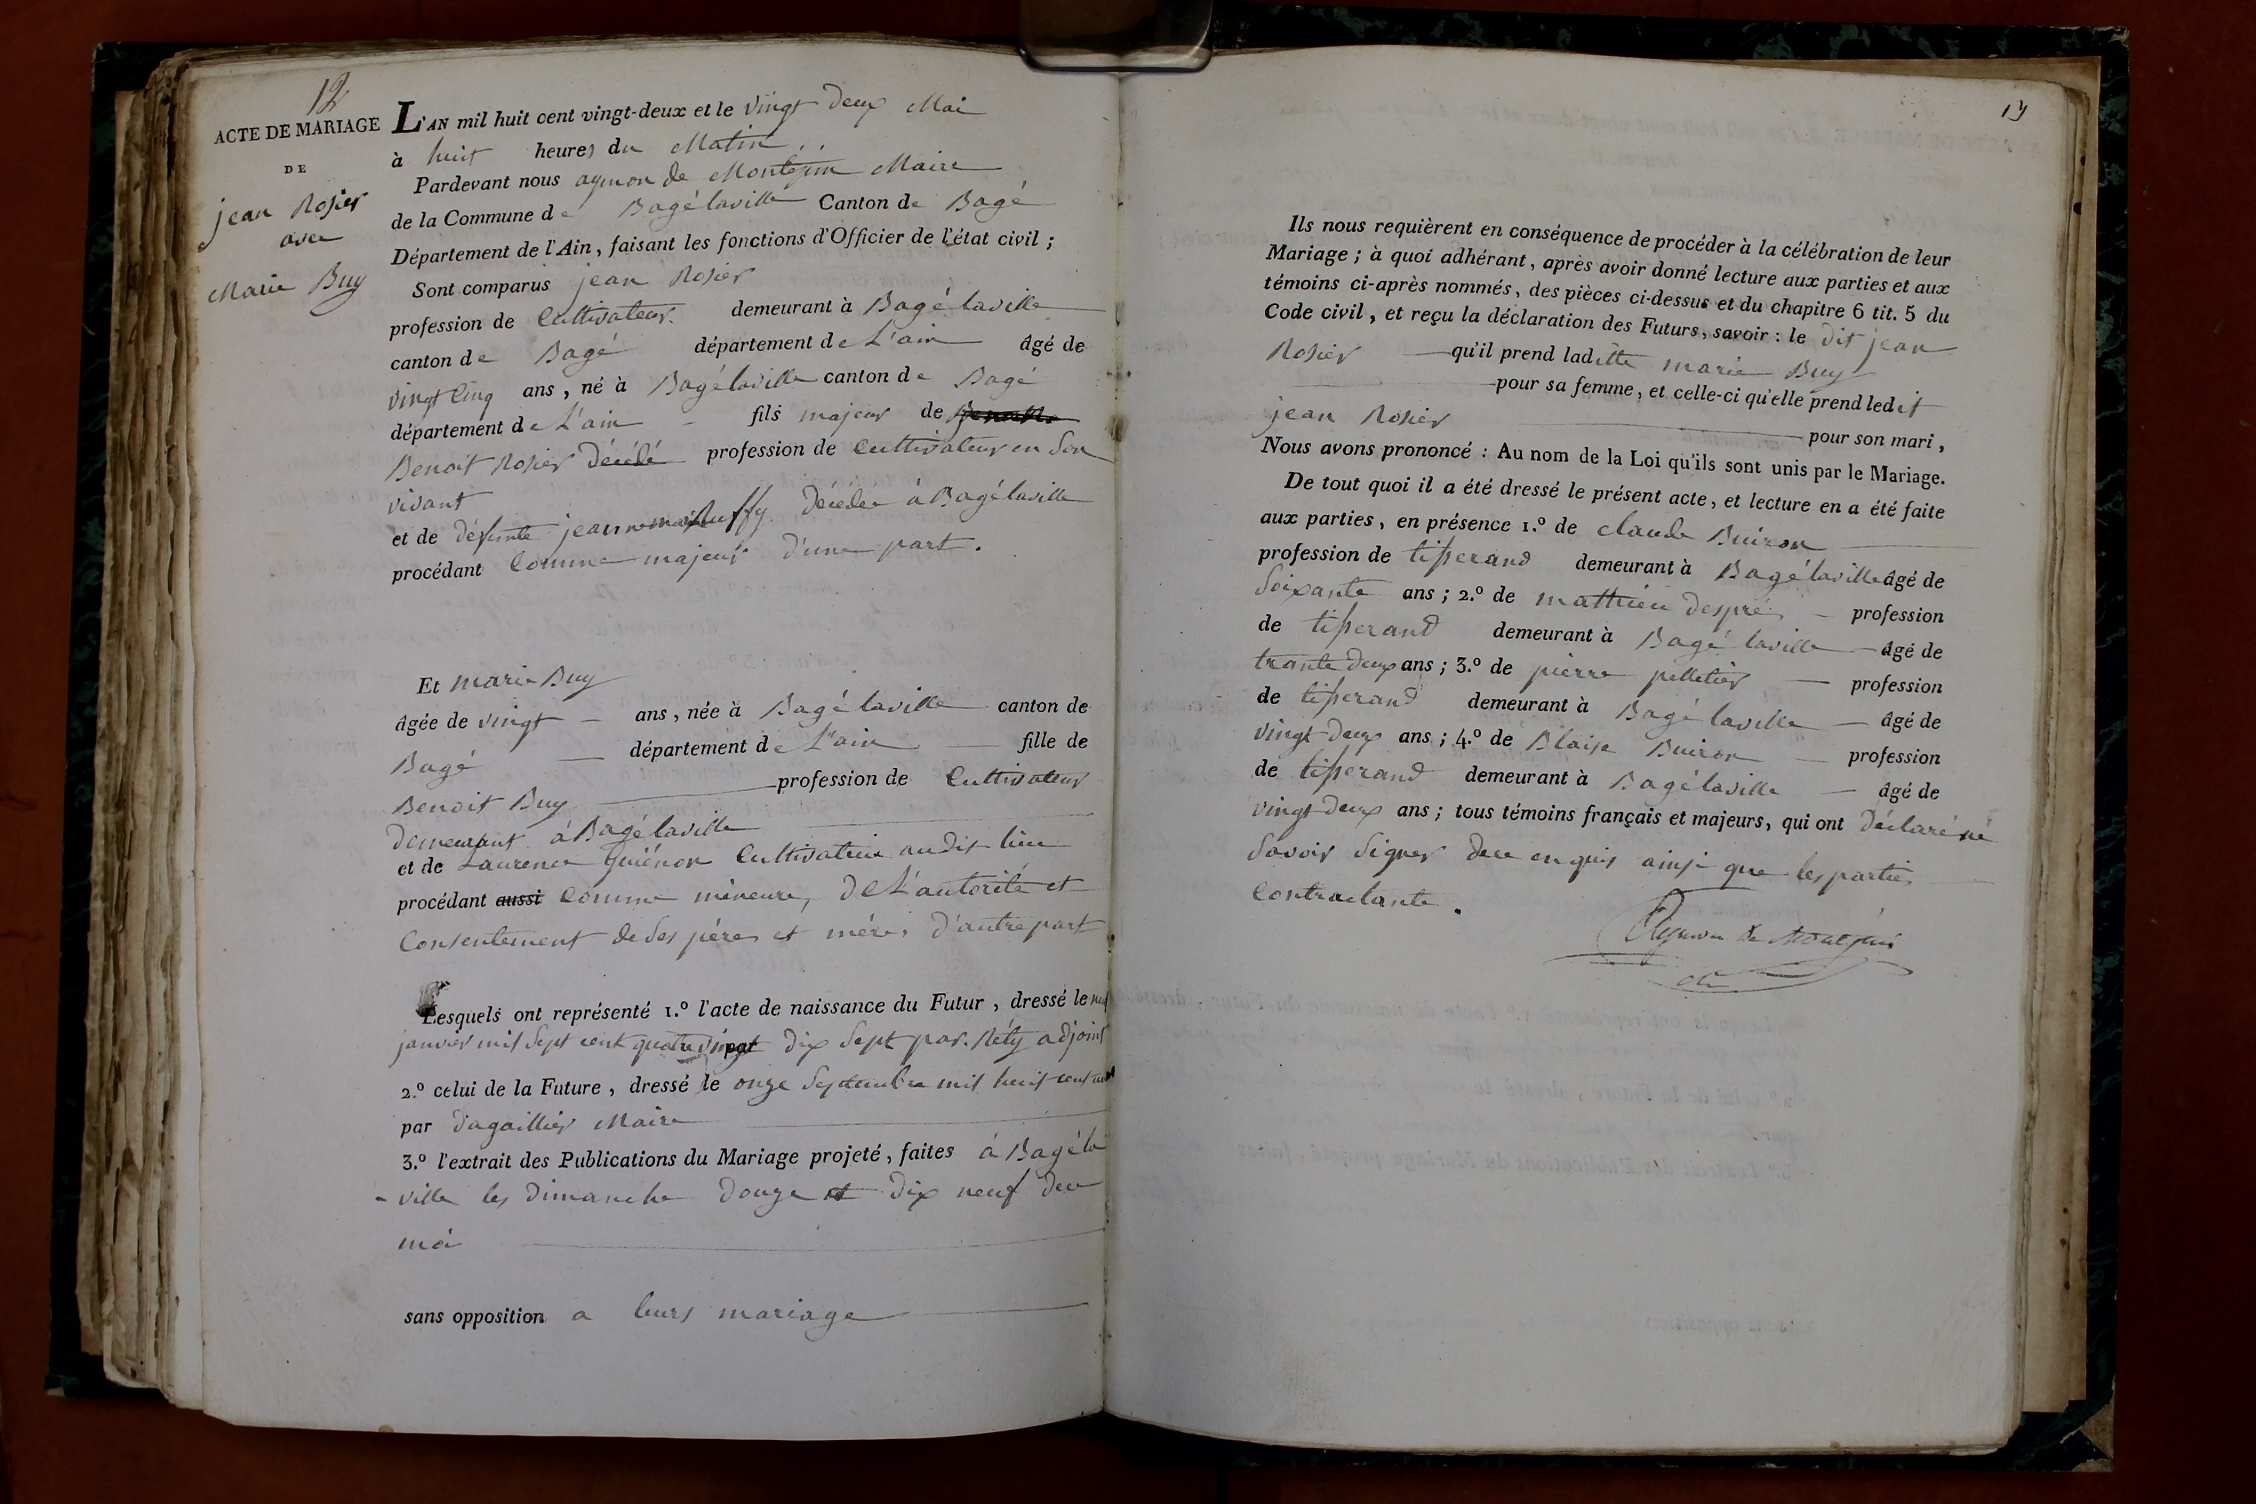 12
ACTE DE MARIAGE
DE
jean Rosier
avec
Marie Buy
L'AN mil huit cent vingt-deux et le vingt deux Mai
à huit heures du Matin
Pardevant nous aymon de Montepin Maire
de la Commune de Bagé laville Canton de Bagé
Département de l'Ain, faisant les fonctions d'Officier de l'état civil ;
Sont comparus jean Rosier
profession de Cultivateur. demeurant à Bagé laville
canton de Bagé département de L'ain âgé de
vingt Cinq ans, né à Bagé laville canton de Bagé
département de L'ain fils majeur de
Benoit Rosier décédé profession de Cultivateur en Son
vivant
et de défunte jeanne décédée à Bagé laville
procédant Comme majeur d'une part.
Et marie Buy
âgée de vingt ans, née à Bagé laville canton de
Bagé département de L'ain fille de
Benoit Buy profession de Cultivateur
demeurant à Bagé laville
et de Laurence Guiénon Cultivatrice audit lieu
procédant aussi Comme mineure, de L'autorité et
Consentement de Ses pères et mères d'autre part
Lesquels ont représenté 1.º l'acte de naissance du Futur, dressé le neuf
janvier mil Sept cent quatre vingt dix Sept par Réty adjoint
2.º celui de la Future, dressé le onze Septembre mil huit cent un
par dagaillier Maire
3.º l'extrait des Publications du Mariage projeté, faites à Bagé la
- ville les dimanche douze et dix neuf dud
mai
sans opposition a leurs mariage
13
Ils nous requièrent en conséquence de procéder à la célébration de leur
Mariage ; à quoi adhérant, après avoir donné lecture aux parties et aux
témoins ci-après nommés, des pièces ci-dessus et du chapitre 6 tit. 5 du
Code civil, et reçu la déclaration des Futurs, savoir : le dit jean
Rosier qu'il prend laditte marie Buy
pour sa femme, et celle-ci qu'elle prend ledit
jean Rosier pour son mari,
Nous avons prononcé : Au nom de la Loi qu'ils sont unis par le Mariage.
De tout quoi il a été dressé le présent acte, et lecture en a été faite
aux parties, en présence 1.º de claude Buiron
profession de tisserand demeurant à Bagé laville âgé de
Soixante ans ; 2.º de mathieu despré profession
de tisserand demeurant à Bagé laville âgé de
trante deux ans ; 3.º de pierre pelletier profession
de tisserand demeurant à Bagé laville âgé de
vingt deux ans ; 4.º de Blaise Buiron profession
de tisserand demeurant à Bagé laville âgé de
vingt deux ans ; tous témoins français et majeurs, qui ont déclaré ne
Savoir Signer de ce enquis ainsi que les parties
Contractante.
Aymon de Montepin